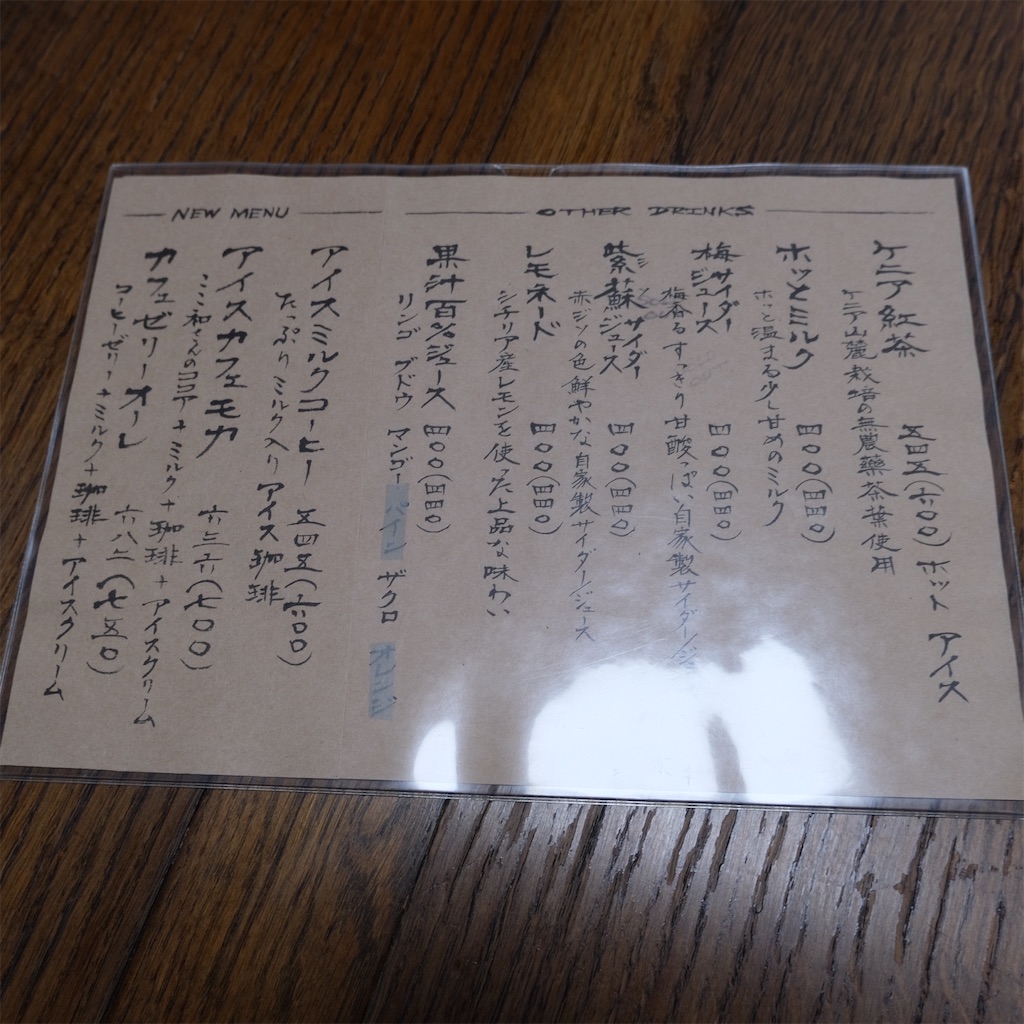 OTHER DRINKS
ケニア紅茶 五四五(六〇〇) ホット アイス
ケニア山麓栽培の無農薬茶葉使用
ホットミルク 四〇〇(四四〇)
ホッと温まる少し甘めのミルク
梅サイダー
ジュース 四〇〇(四四〇)
梅香るすっきり甘酸っぱい自家製サイダー/ジ
シソ
紫蘇サイダー
ジュース 四〇〇(四四〇)
赤ジソの色鮮やかな自家製サイダー/ジュース
レモネード 四〇〇(四四〇)
シチリア産レモンを使った上品な味わい
果汁百%ジュース 四〇〇(四四〇)
リンゴ ブドウ マンゴー パイン ザクロ オレンジ
NEW MENU
アイスミルクコーヒー 五四五(六〇〇)
たっぷりミルク入りアイス珈琲
アイスカフェモカ 六三六(七〇〇)
ここ和さんのココア+ミルク+珈琲+アイスクリーム
カフェゼリーオーレ 六八二(七五〇)
コーヒーゼリー+ミルク+珈琲+アイスクリーム